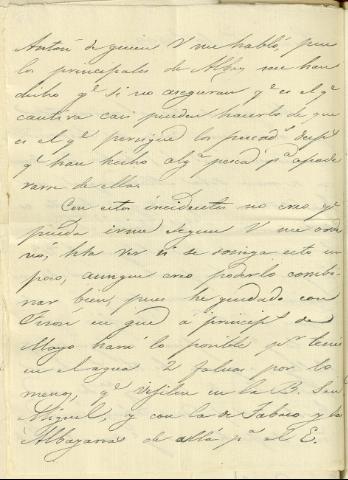 Antoñ de quien V me habló, pues
los principales de Alhq me han
dicho qᵉ si no aseguran qᵉ es el qᵉ
cautiva casi pueden hacerlo de que
es el qᵉ persigue los pescadˢ despˢ
qᵉ han hecho algᵃ pesca pᵃ apode
rarse de ella.
Con estos incidentes no creo qᵉ
pueda irme segun V me orde
nó, hta ver si se sosiega esto un
poco, aunque creo poderlo combi
nar bien, pues he quedado con
en qué á princip de
Mayo hará lo posible pʳ tener
en el agua 2 falúas por lo
menos, qᵉ vigilen en la B. San
Miguel, y con la de Tabaco y la
Albayana de allá pᵃ el E.